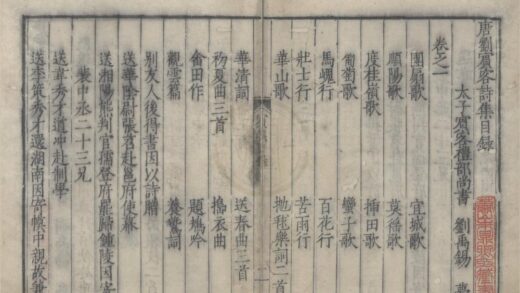 唐劉賓客詩集目錄
太子賓客禮部尚書 劉禹錫
卷之一
團扇歌 宜城歌
順陽歌 莫徭歌
度桂嶺歌 插田歌
葡萄歌 蠻子歌
馬嵬行 百花行
壯士行 苦雨行
華山歌 拋毬樂詞二首
華清詞 送春曲三首
初夏曲三首 搗衣曲
畬田作 題鴠吟
觀雲篇 養鷙詞
別友人後得書因以詩贈
送華陰尉張苕赴邕府使幕
送湘陽熊判官孺登府罷歸鍾陵因寄
裴中丞二十三兄
送韋秀才道冲赴制舉
送李策秀才還湖南因府幕中親故兼